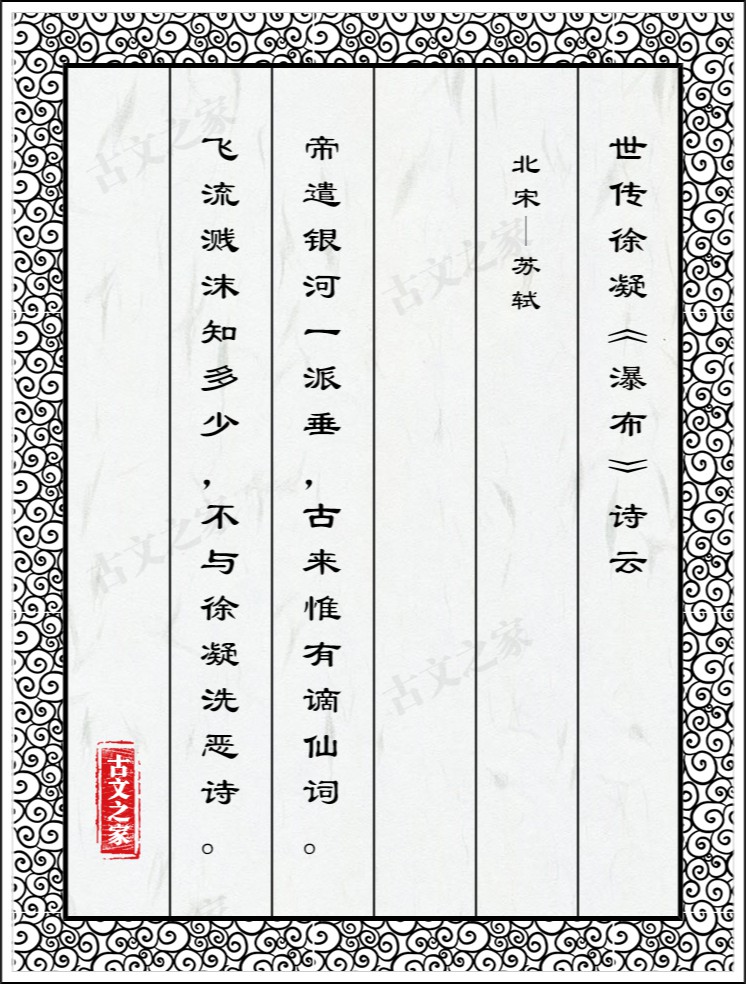 世传徐凝《瀑布》诗云
北宋—苏轼
帝遣银河一派垂,古来惟有谪仙词。
飞流溅沫知多少,不与徐凝洗恶诗。
古文之家
古文之家
古文之家
古文之家
古文之家